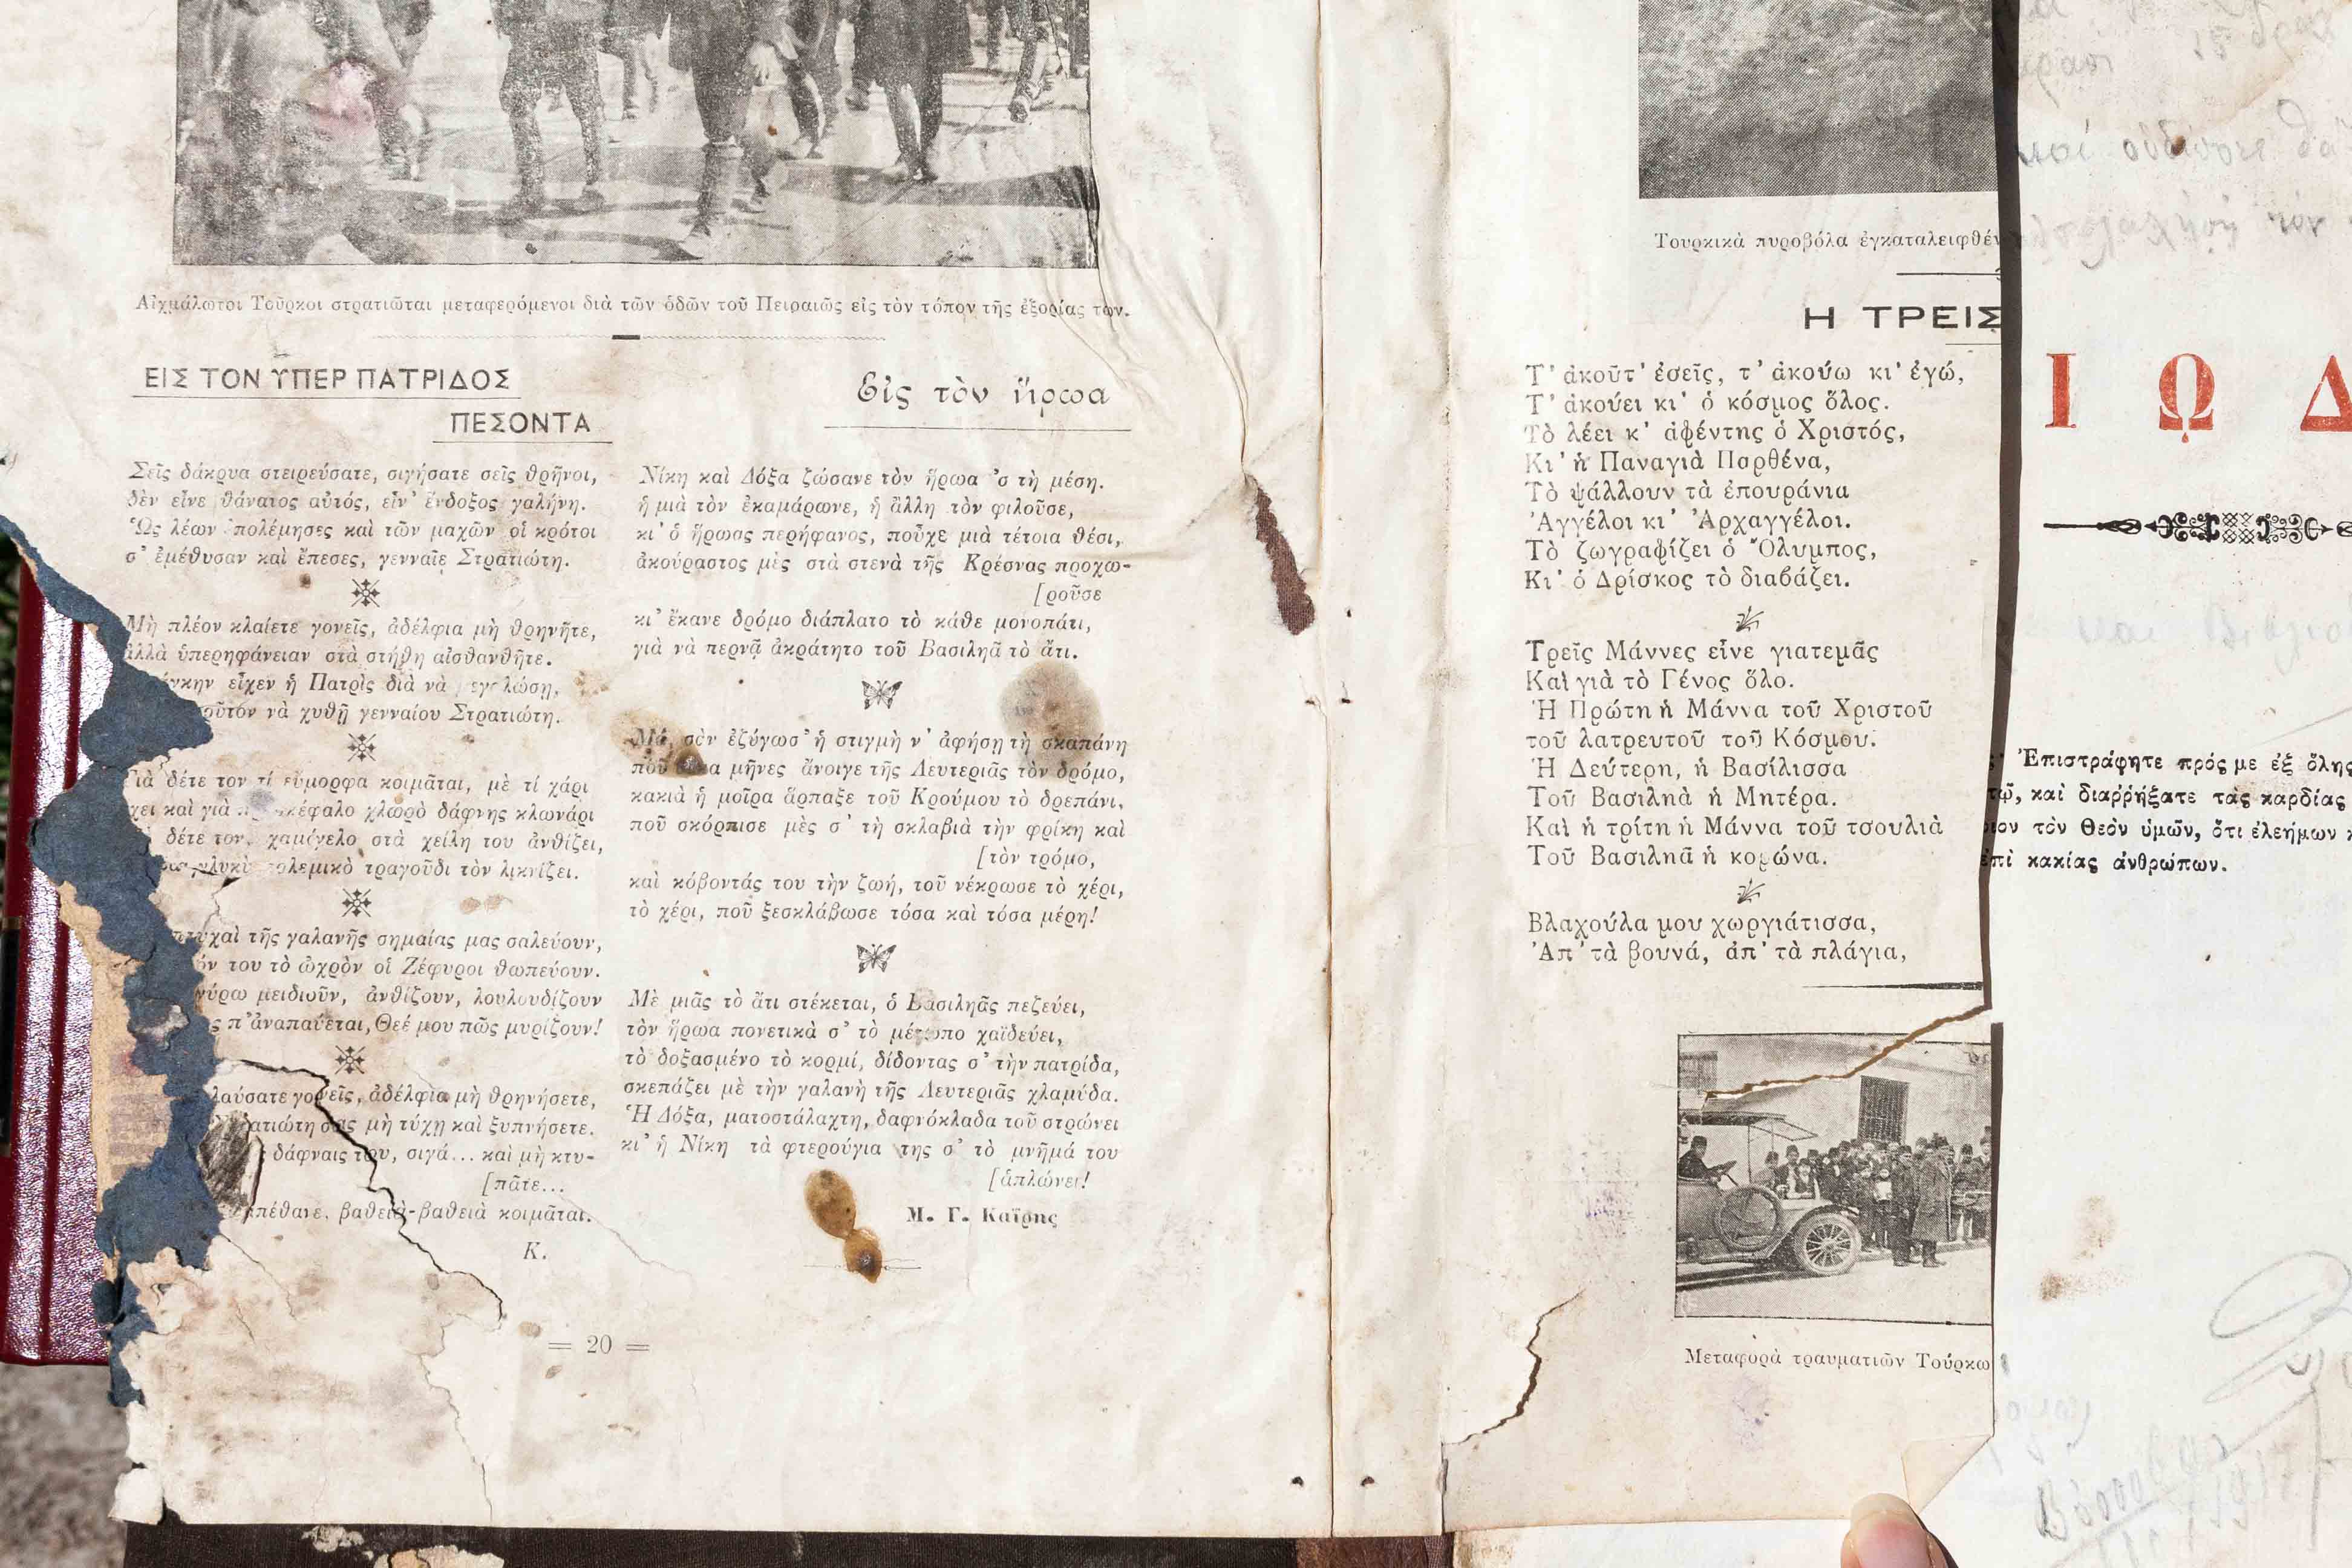 Αἰχμάλωτοι Τοῦρκοι στρατιῶται μεταφερόμενοι διὰ τῶν ὁδῶν τοῦ Πειραιῶς εἰς τὸν τόπον τῆς ἐξορίας των.
ΕΙΣ ΤΟΝ ΥΠΕΡ ΠΑΤΡΙΔΟΣ
ΠΕΣΟΝΤΑ
Σεῖς δάκρυα στειρεύσατε, σιγήσατε σεῖς θρῆνοι,
δὲν εἶνε θάνατος αὐτός, εἶν' ἔνδοξος γαλήνη.
Ὡς λέων πολέμησες καὶ τῶν μαχῶν οἱ κρότοι
σ' ἐμέθυσαν καὶ ἔπεσες, γενναῖε Στρατιώτη.
Μὴ πλέον κλαίετε γονεῖς, ἀδέλφια μὴ θρηνῆτε,
ἀλλὰ ὑπερηφάνειαν στὰ στήθη αἰσθανθῆτε.
εἶχεν ἡ Πατρὶς διὰ νὰ
νὰ χυθῇ γενναίου Στρατιώτη.
δέτε τον τί εὔμορφα κοιμᾶται, μὲ τί χάρι
καὶ γιὰ χλωρὸ δάφνης κλωνάρι
δέτε τον χαμόγελο στὰ χείλη του ἀνθίζει,
γλυκὺ πολεμικὸ τραγοῦδι τὸν λικνίζει.
τῆς γαλανῆς σημαίας μας σαλεύουν,
του τὸ ὠχρὸν οἱ Ζέφυροι θωπεύουν.
γύρω μειδιοῦν, ἀνθίζουν, λουλουδίζουν
π' ἀναπαύεται, Θεέ μου πῶς μυρίζουν!
γονεῖς, ἀδέλφια μὴ θρηνήσετε,
σας μὴ τύχῃ καὶ ξυπνήσετε.
δάφναις του, σιγά... καὶ μὴ κτυ-
[πᾶτε...
βαθειὰ-βαθειὰ κοιμᾶται.
Κ.
Εἰς τὸν ἥρωα
Νίκη καὶ Δόξα ζώσανε τὸν ἥρωα 'σ τὴ μέση.
ἡ μιὰ τὸν ἐκαμάρωνε, ἡ ἄλλη τὸν φιλοῦσε,
κι' ὁ ἥρωας περήφανος, ποὖχε μιὰ τέτοια θέσι,
ἀκούραστος μὲς στὰ στενὰ τῆς Κρέσνας προχω-
[ροῦσε
κι' ἔκανε δρόμο διάπλατο τὸ κάθε μονοπάτι,
γιὰ νὰ περνᾷ ἀκράτητο τοῦ Βασιληᾶ τὸ ἄτι.
Μά, σὰν ἐζύγωσ' ἡ στιγμὴ ν' ἀφήσῃ τὴ σκαπάνη
ποῦ μῆνες ἄνοιγε τῆς Λευτεριᾶς τὸν δρόμο,
κακιὰ ἡ μοῖρα ἅρπαξε τοῦ Κρούμου τὸ δρεπάνι,
ποῦ σκόρπισε μὲς σ' τὴ σκλαβιὰ τὴν φρίκη καὶ
[τὸν τρόμο,
καὶ κόβοντάς του τὴν ζωή, τοῦ νέκρωσε τὸ χέρι,
τὸ χέρι, ποῦ ξεσκλάβωσε τόσα καὶ τόσα μέρη!
Μὲ μιᾶς τὸ ἄτι στέκεται, ὁ Βασιληᾶς πεζεύει,
τὸν ἥρωα πονετικὰ σ' τὸ μέτωπο χαϊδεύει,
τὸ δοξασμένο τὸ κορμί, δίδοντας σ' τὴν πατρίδα,
σκεπάζει μὲ τὴν γαλανὴ τῆς Λευτεριᾶς χλαμύδα.
Ἡ Δόξα, ματοστάλαχτη, δαφνόκλαδα τοῦ στρώνει
κι' ἡ Νίκη τὰ φτερούγια της σ' τὸ μνῆμά του
[ἁπλώνει!
Μ. Γ. Καΐρης
= 20 =
Τουρκικὰ πυροβόλα ἐγκαταλειφθέν
Η ΤΡΕΙΣ
Τ' ἀκοῦτ' ἐσεῖς, τ' ἀκούω κι' ἐγώ,
Τ' ἀκούει κι' ὁ κόσμος ὅλος.
Τὸ λέει κ' ἀφέντης ὁ Χριστός,
Κι' ἡ Παναγιὰ Παρθένα,
Τὸ ψάλλουν τὰ ἐπουράνια
Ἀγγέλοι κι' Ἀρχαγγέλοι.
Τὸ ζωγραφίζει ὁ Ὄλυμπος,
Κι' ὁ Δρίσκος τὸ διαβάζει.
Τρεῖς Μάννες εἶνε γιατεμᾶς
Καὶ γιὰ τὸ Γένος ὅλο.
Ἡ Πρώτη ἡ Μάννα τοῦ Χριστοῦ
τοῦ λατρευτοῦ τοῦ Κόσμου.
Ἡ Δεύτερη, ἡ Βασίλισσα
Τοῦ Βασιληὰ ἡ Μητέρα.
Καὶ ἡ τρίτη ἡ Μάννα τοῦ τσουλιὰ
Τοῦ Βασιληᾶ ἡ κορώνα.
Βλαχούλα μου χωργιάτισσα,
Ἀπ' τὰ βουνά, ἀπ' τὰ πλάγια,
Μεταφορὰ τραυματιῶν Τούρκω
Ι Ω Δ
Ἐπιστράφητε πρός με ἐξ ὅλης
καὶ διαρρήξατε τὰς καρδίας
τὸν Θεὸν ὑμῶν, ὅτι ἐλεήμων
ἐπὶ κακίας ἀνθρώπων.